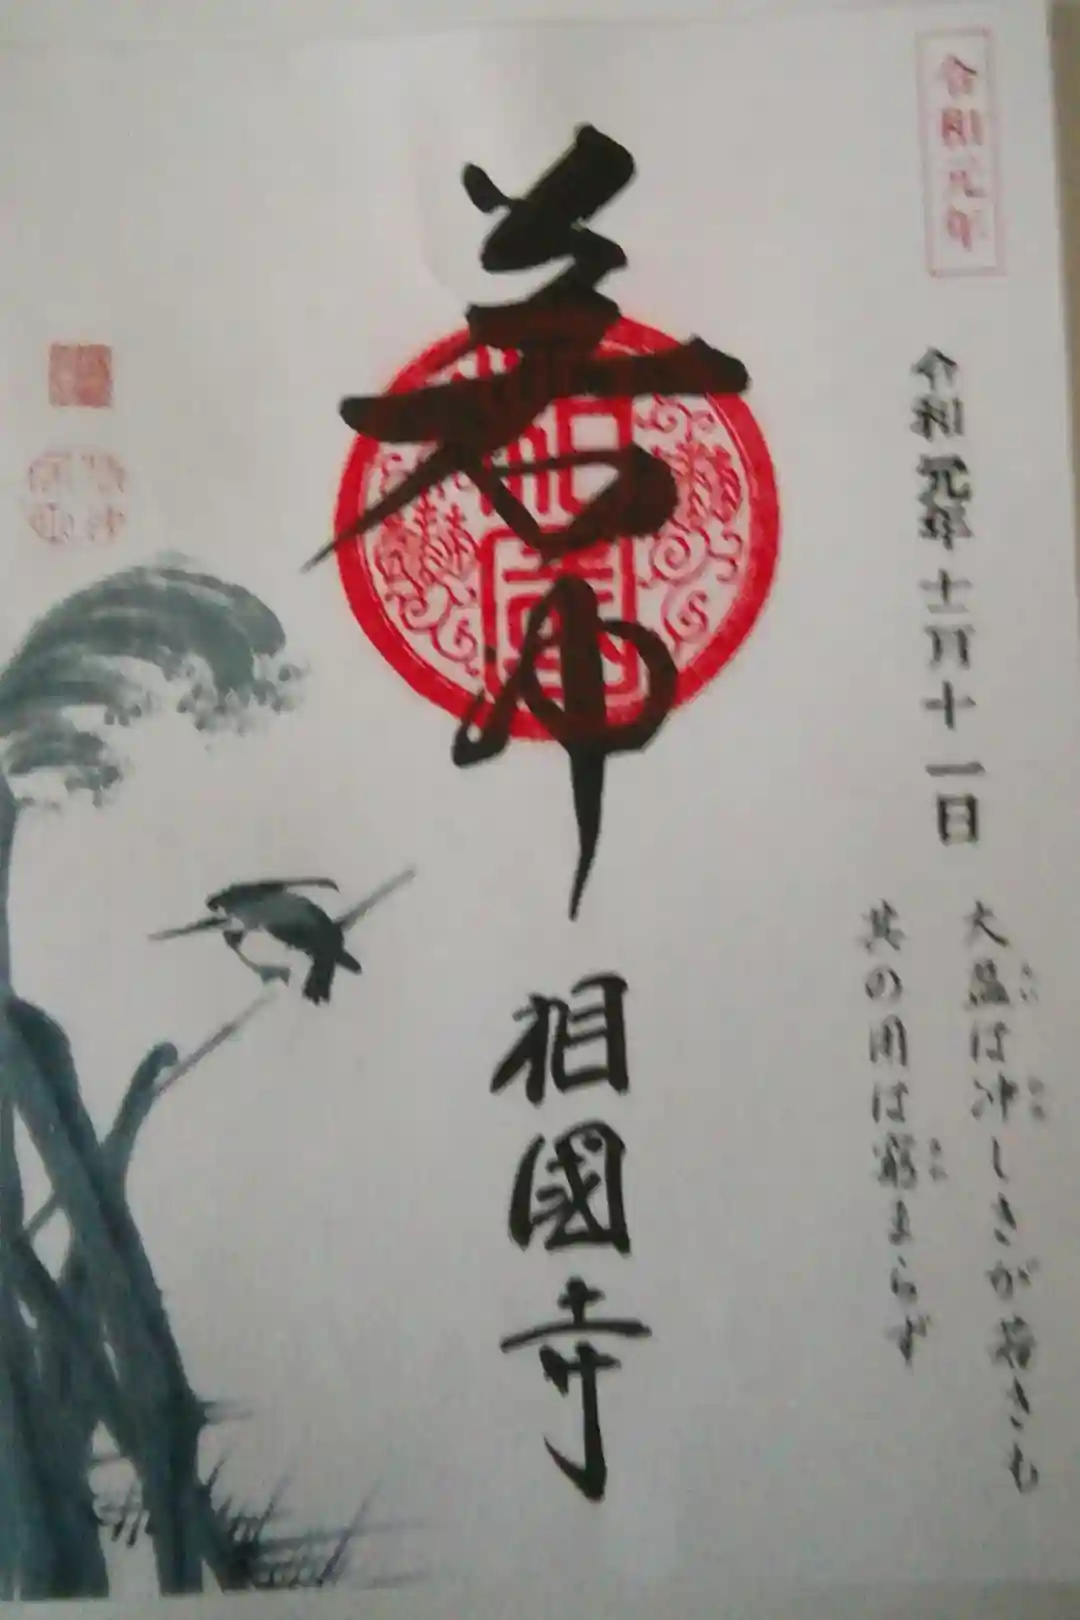 令和元年
令和元年十二月十一日
大盈は冲しきが若きも
其の用は窮まらず
若冲
相國寺
相国